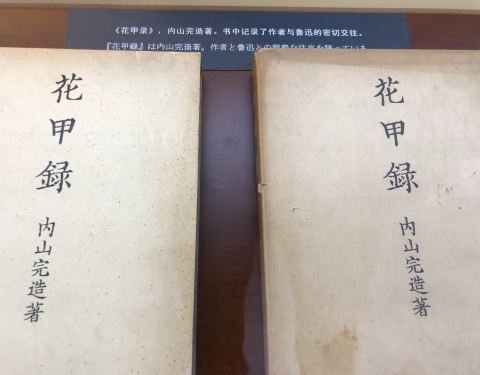 《花甲录》，内山完造著。书中记录了作者与鲁迅的密切交往。
『花甲録』は内山完造著。作者と鲁迅との親密な往来を語っている
花甲録
内山完造著
花甲録
内山完造著